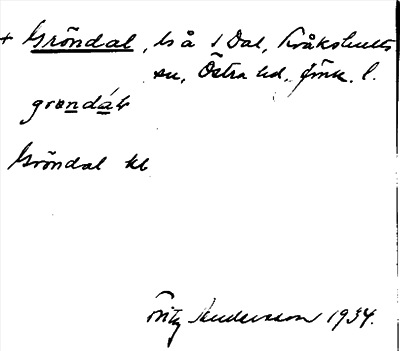 + Gröndal, ls å 1 Dal, Kråkshults
sn, Östra hd, Jönk. l.
grøndáł
Gröndal kb
Fritz Andersson 1934.